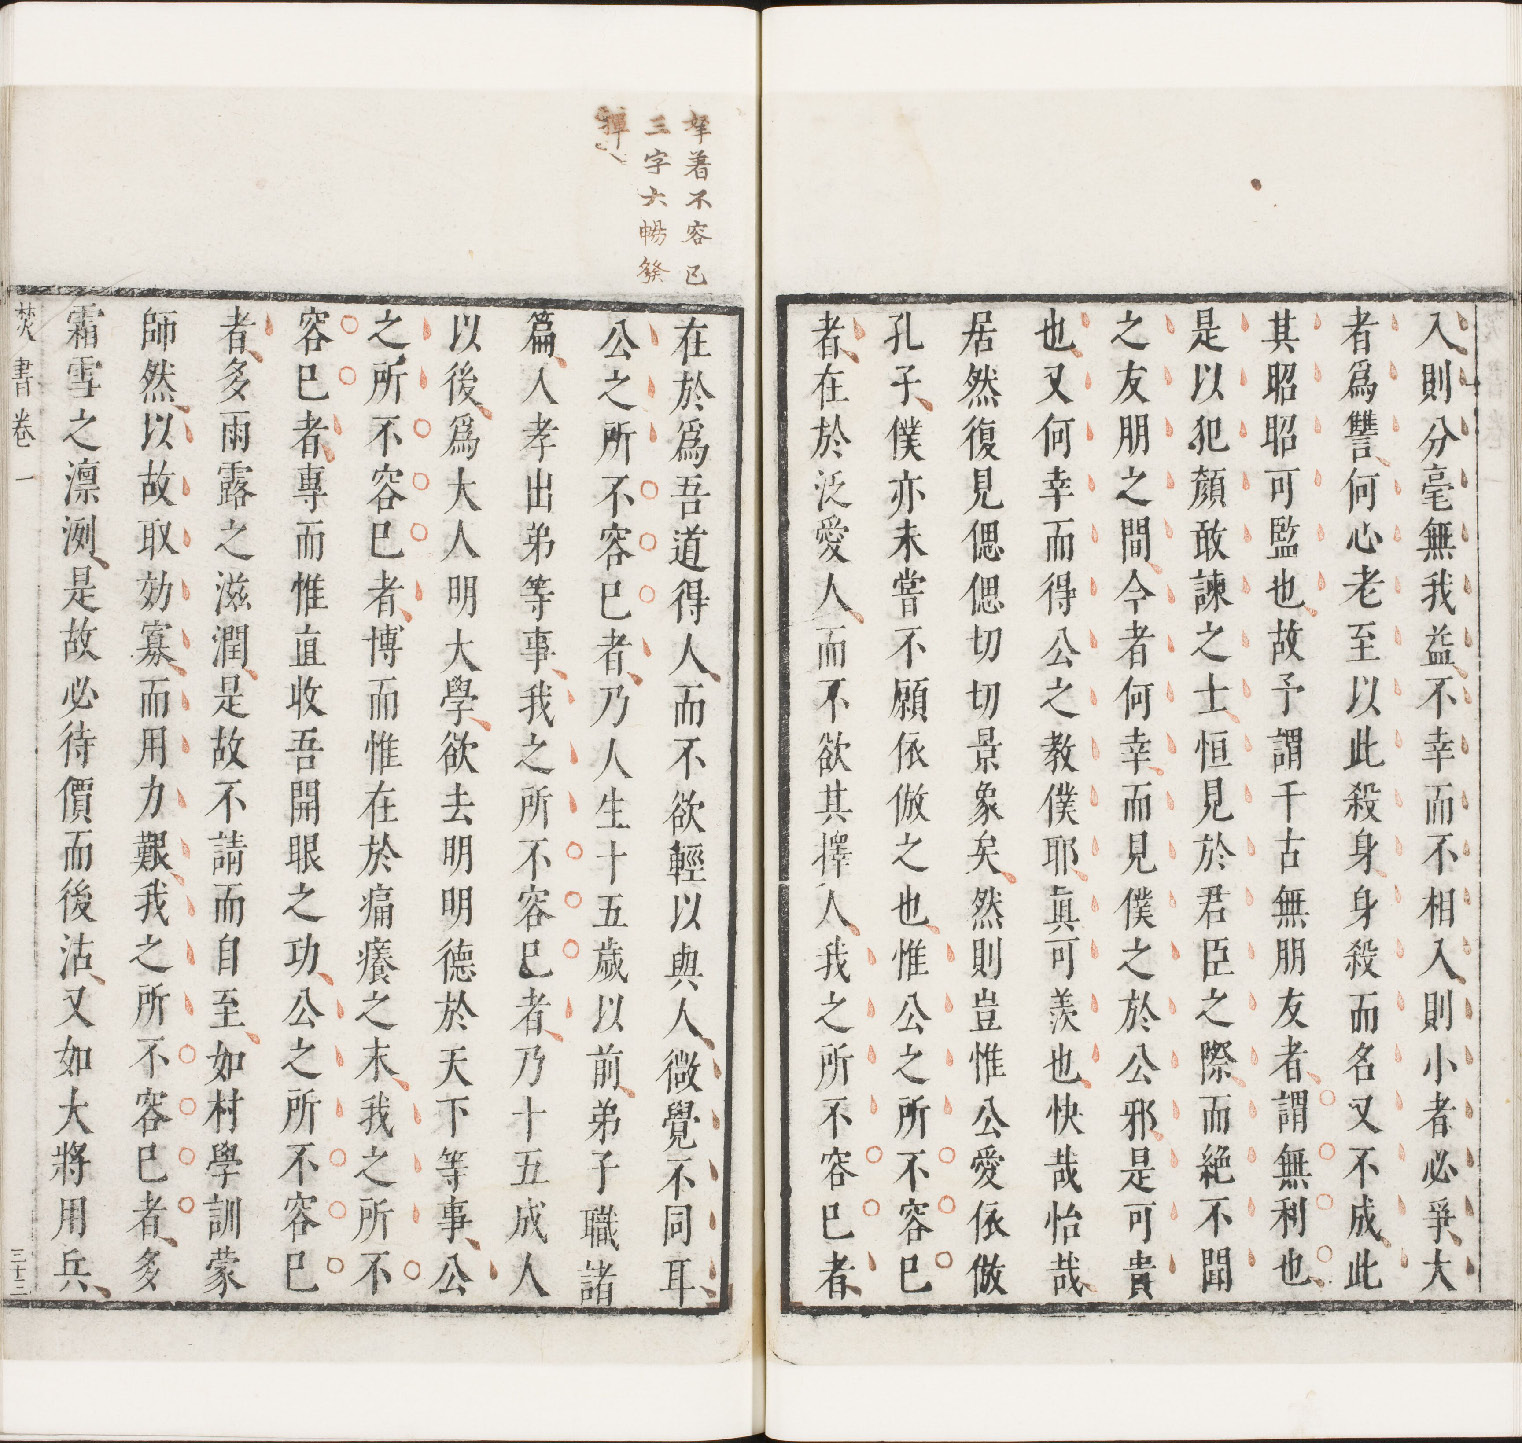 入則分毫無我益不幸而不相入則小者必爭大
者爲讐何心老至以此殺身身殺而名又不成此
其昭昭可監也故予謂千古無朋友者謂無利也
是以犯顏敢諫之士恒見於君臣之際而絕不聞
之友朋之間今者何幸而見僕之於公邪是可貴
也又何幸而得公之教僕耶眞可羨也快哉怡哉
居然復見偲偲切切景象矣然則豈惟公愛依倣
孔子僕亦未嘗不願依倣之也惟公之所不容已
者在於泛愛人而不欲其擇人我之所不容已者
拏著不容已
三字大暢發
揮
在於爲吾道得人而不欲輕以與人微覺不同耳
公之所不容已者乃人生十五歲以前弟子職諸
篇入孝出弟等事我之所不容已者乃十五成人
以後爲大人明大學欲去明明德於天下等事公
之所不容已者博而惟在於痛癢之末我之所不
容已者專而惟直收吾開眼之功公之所不容已
者多雨露之滋潤是故不請而自至如村學訓蒙
師然以故取効寡而用力艱我之所不容已者多
霜雪之凛冽是故必待價而後沽又如大將用兵
焚書卷一
三十三